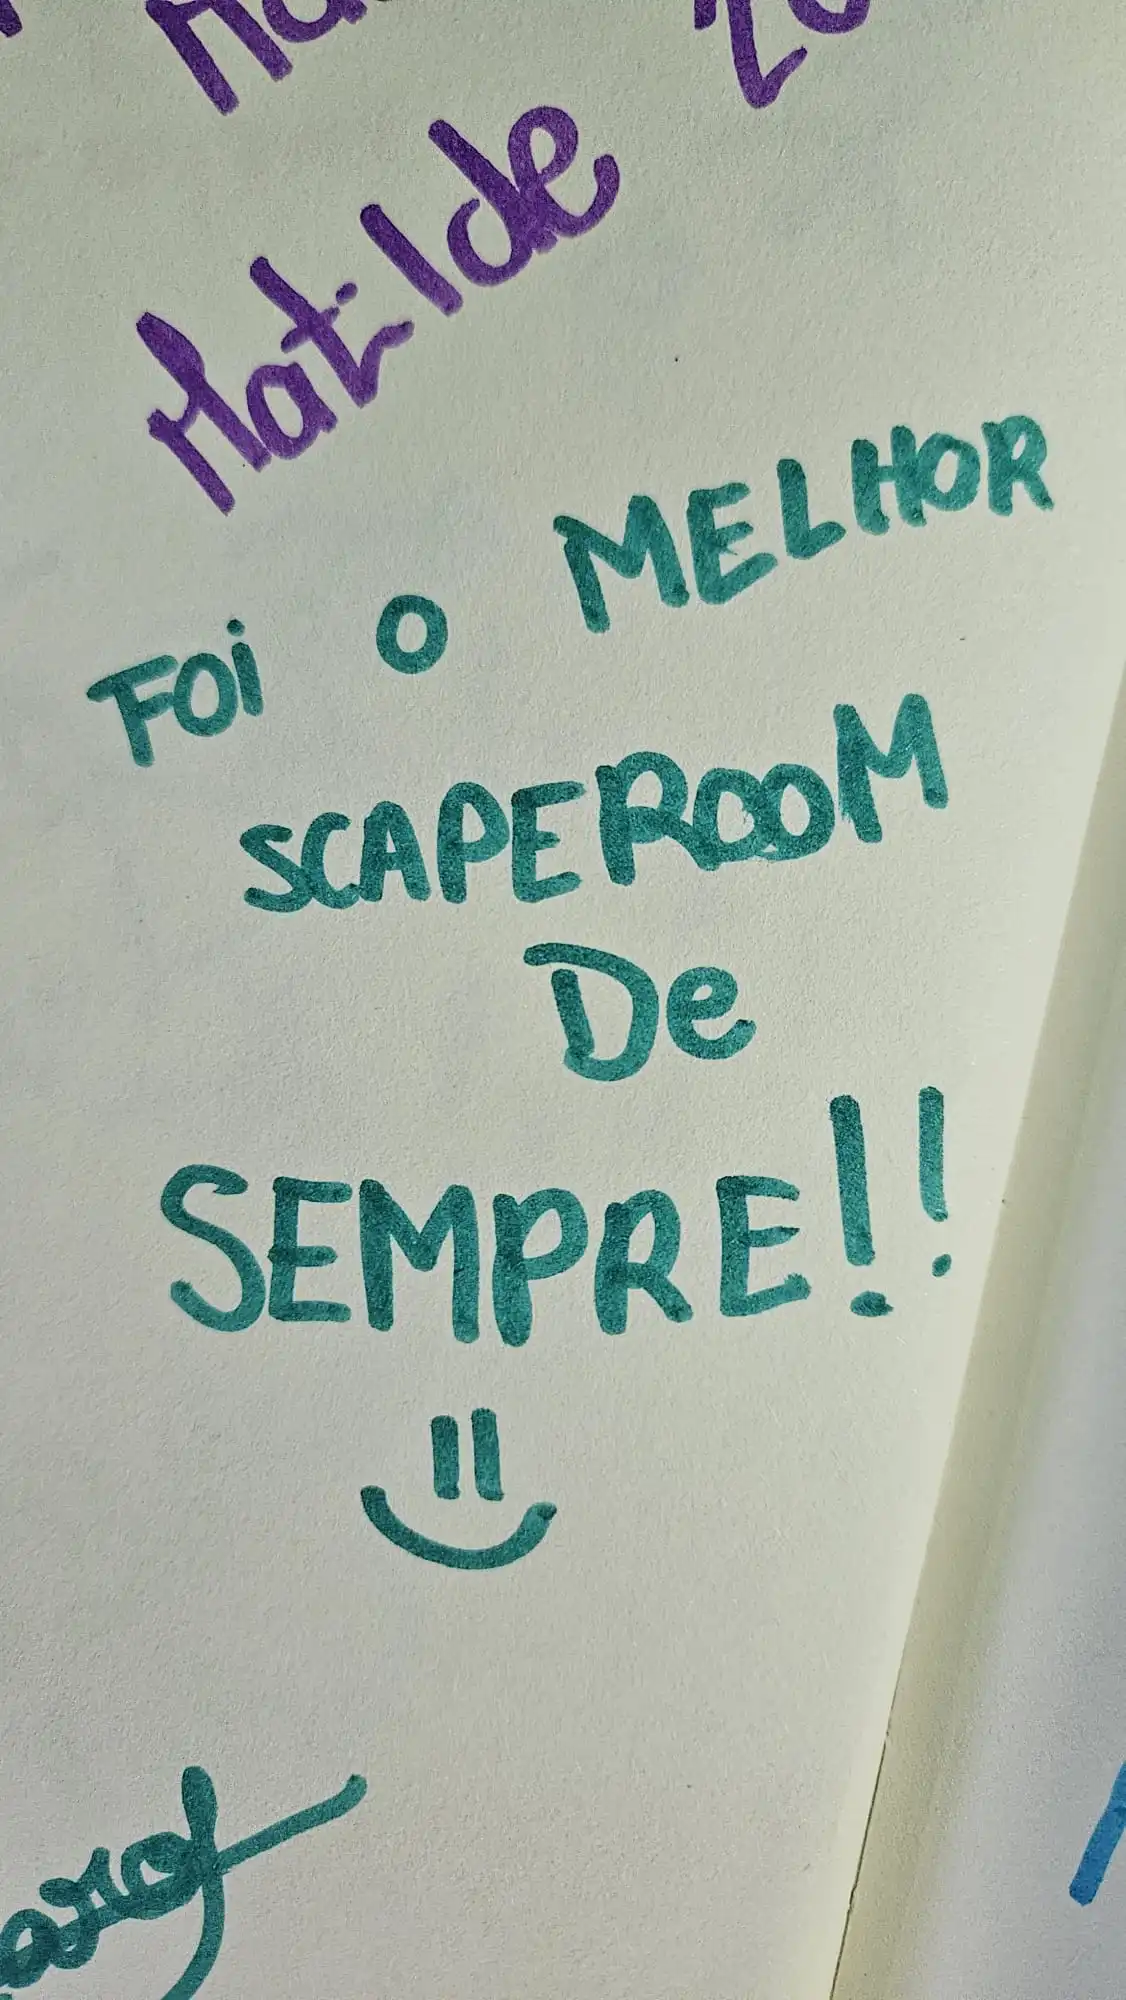 Matilde
FOi O MELHOR
SCAPEROOM
De
SEMPRE!!